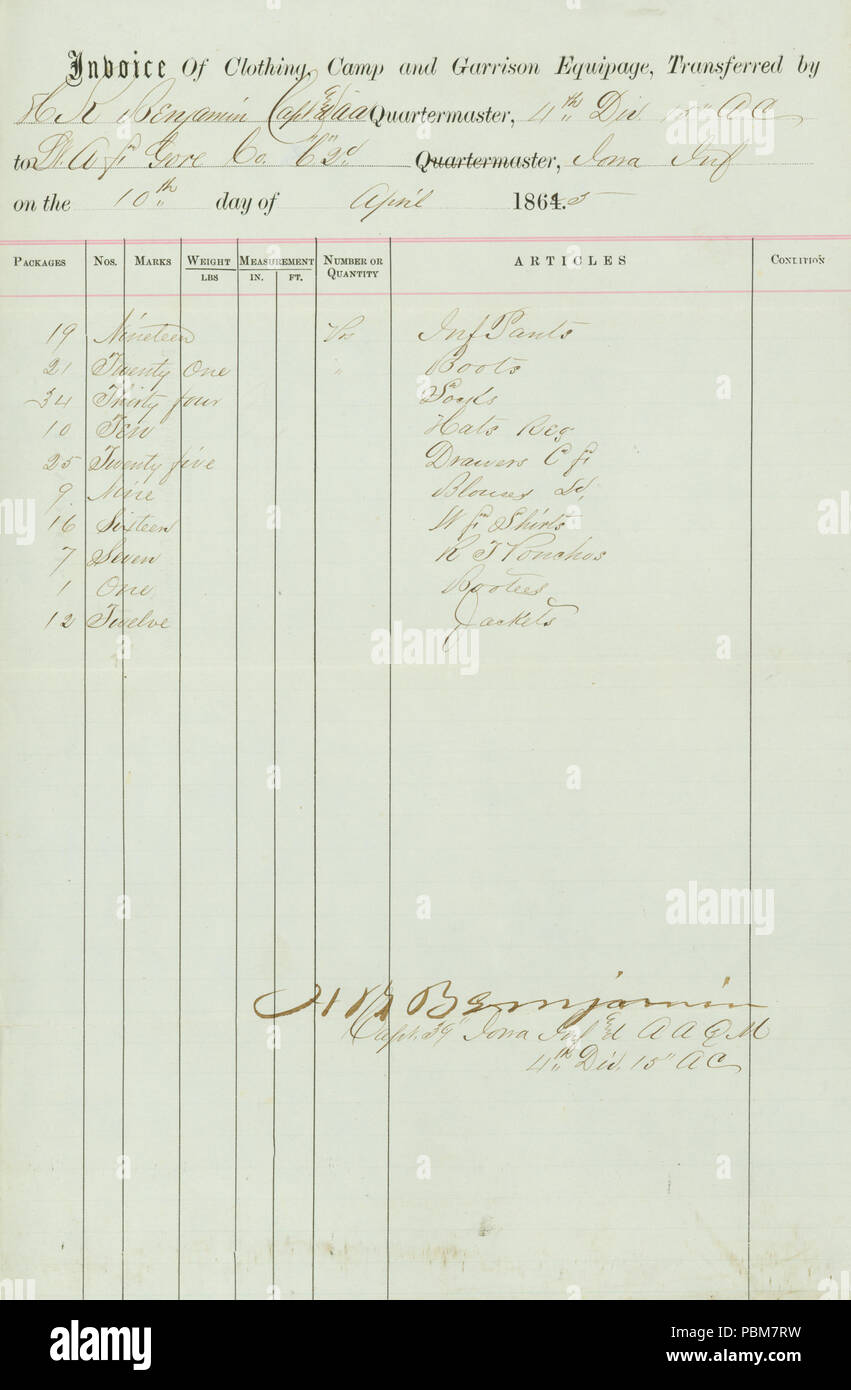 Invoice Of Clothing, Camp and Garrison Equipage, Transferred by
H K Benjamin Capt & AA Quartermaster, 4th Div 15" AC
to Lt. A Gore Co. "2d Quartermaster, Iowa Inf
on the 10th day of April 1864.5
PACKAGES NOS. MARKS WEIGHT LBS MEASUREMENT IN. FT. NUMBER OR QUANTITY ARTICLES CONDITION
19 Nineteen Prs Inf Pants
21 Twenty One " Boots
34 Thirty four Socks
10 Ten Hats Reg
25 Twenty five Drawers C fl
9 Nine Blouses Ld,
16 Sixteen W fl Shirts
7 Seven R T Ponchos
1 One Bootees
12 Twelve Jackets
H K Benjamin
Capt. 39" Iowa Inf & A A Q M
4th Div. 15" AC
alamy
a
alamy
Image ID: PBM7RW
www.alamy.com